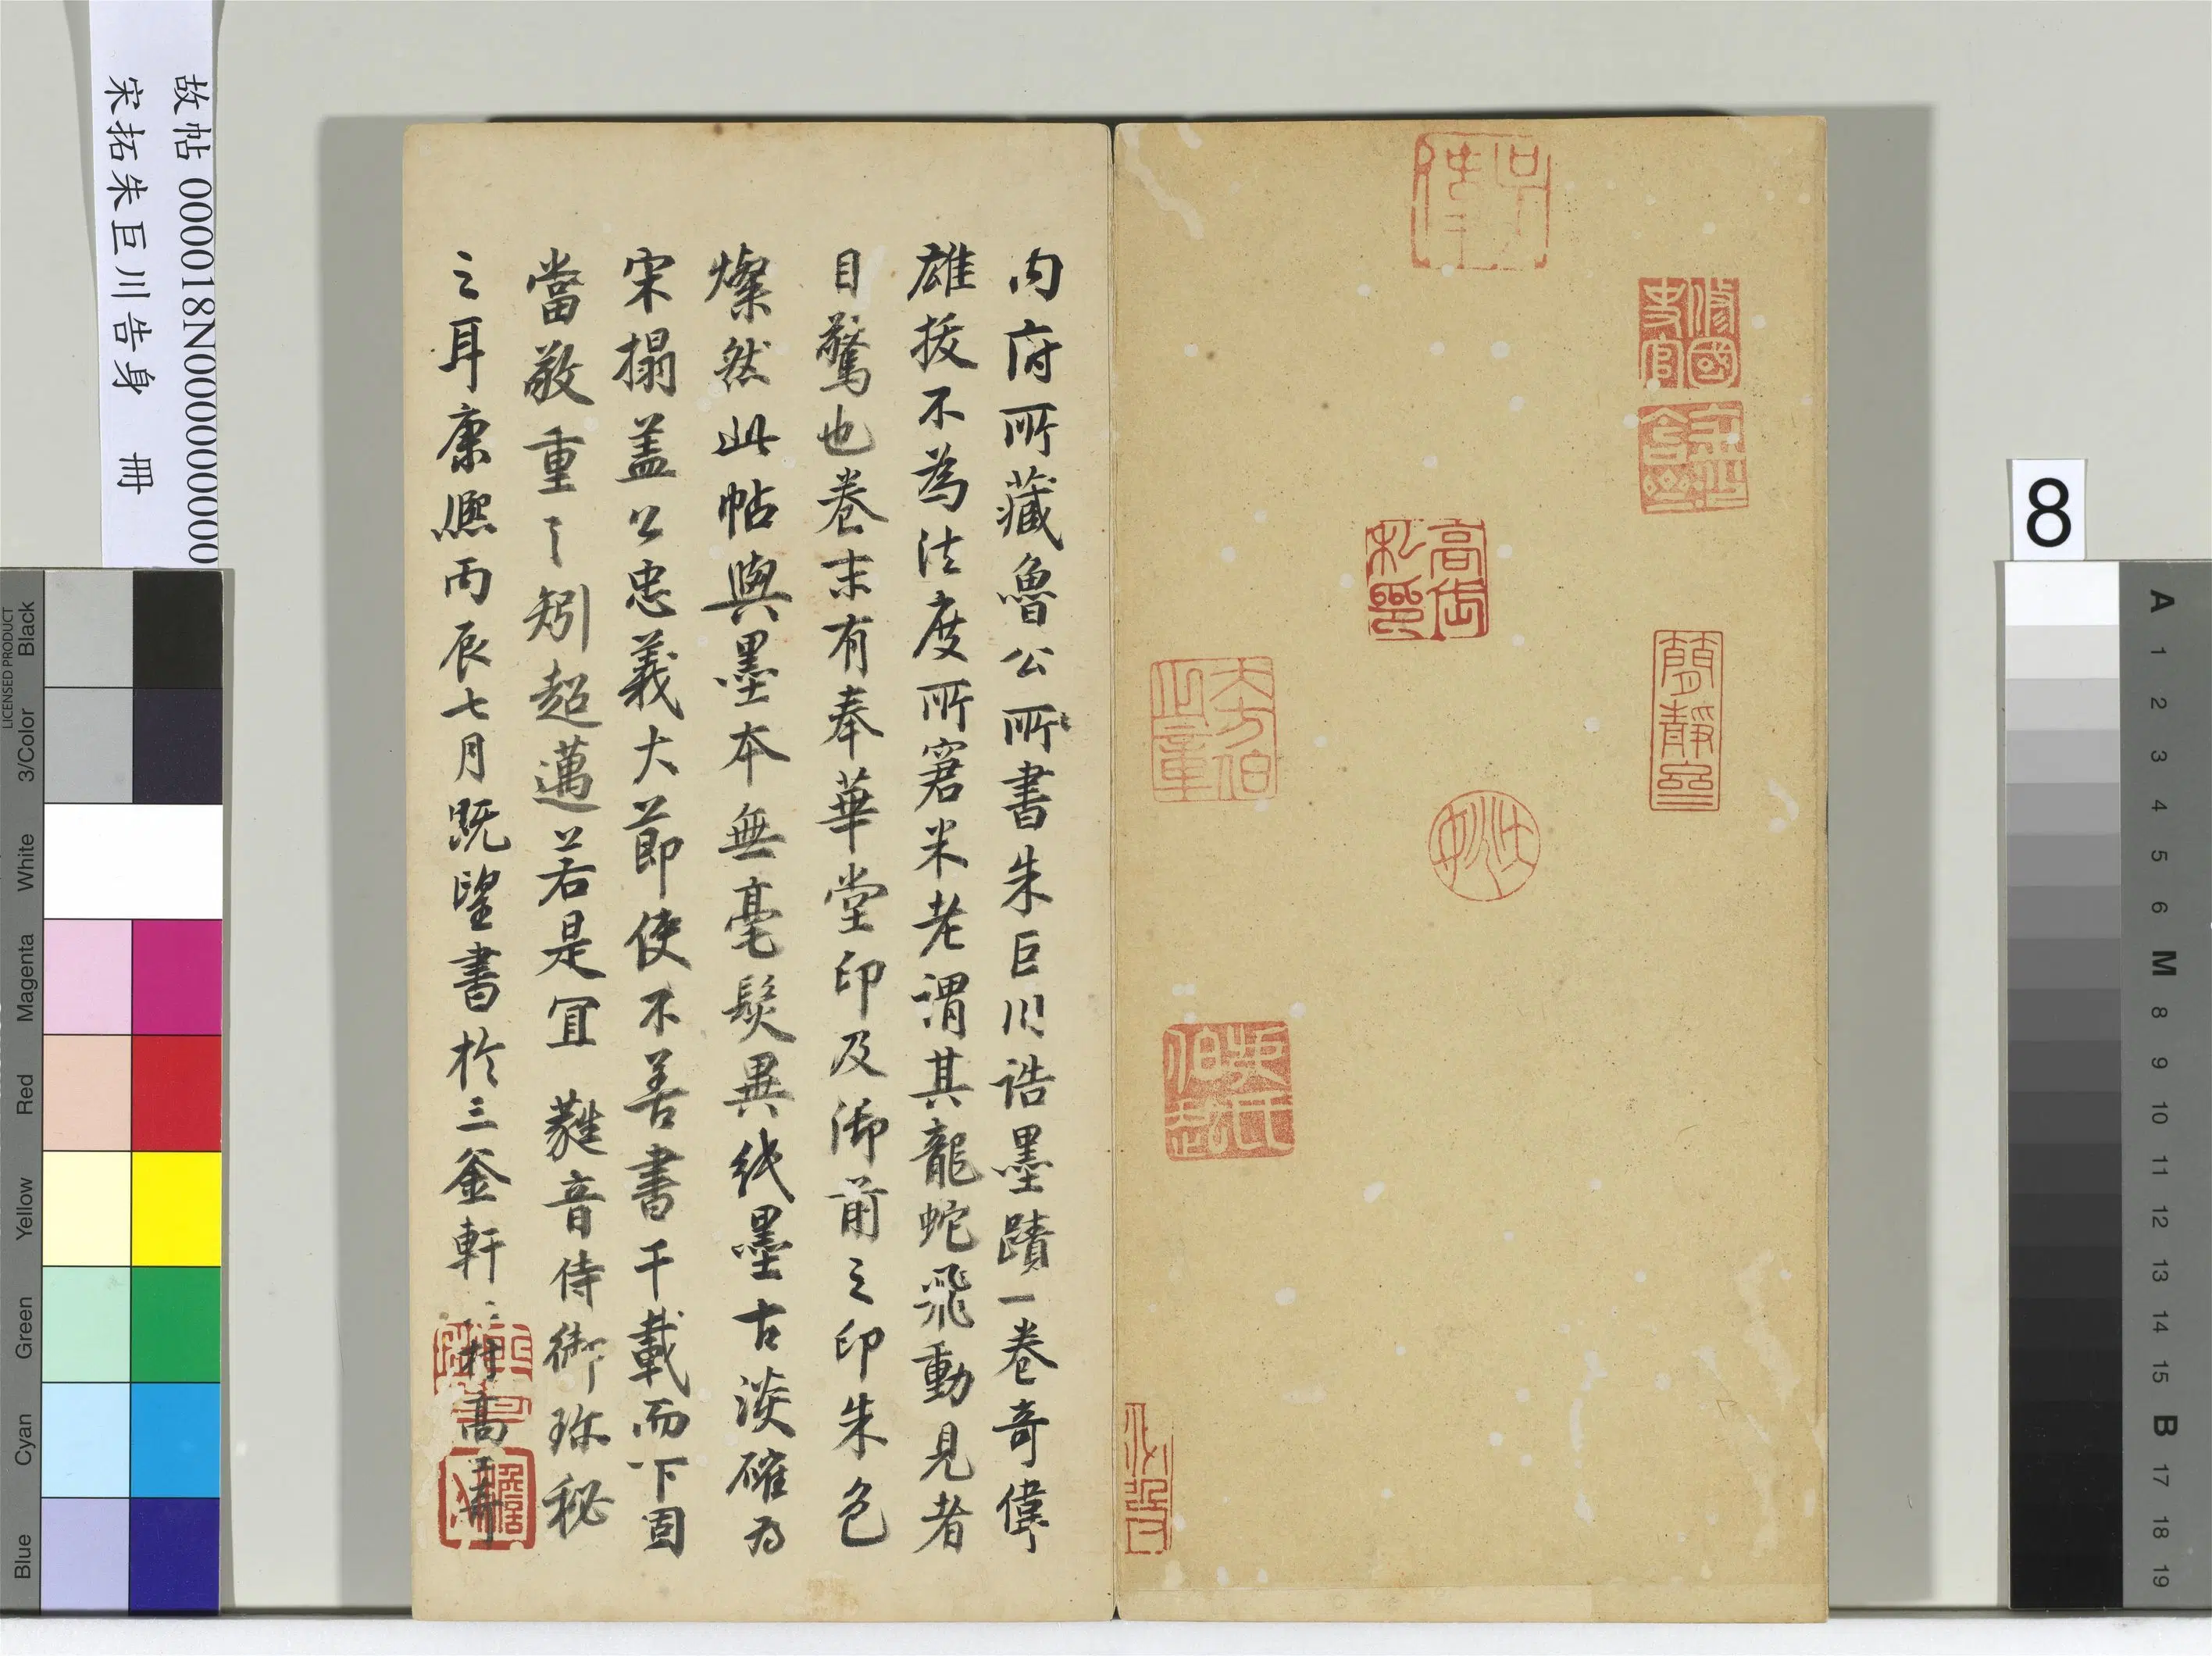 故帖 000018N000000000
宋拓朱巨川告身 冊
8
修國史官
高士奇
私印
簡靜齋
內府所藏魯公所書朱巨川誥墨蹟一卷奇偉
雄拔不為法度所窘米老謂其龍蛇飛動見者
目驚也卷末有奉華堂印及御前之印朱色
燦然此帖與墨本無毫髮異紙墨古淡確為
宋搨蓋公忠義大節使不善書千載而下固
當敬重之矧超邁若是宜蕤音侍御珎秘
之耳康熙丙辰七月既望書於三釜軒江村高士奇
LICENSED PRODUCT
Black
3/Color
White
Magenta
Red
Yellow
Green
Cyan
Blue
A
1
2
3
4
5
6
M
8
9
10
11
12
13
14
15
B
17
18
19